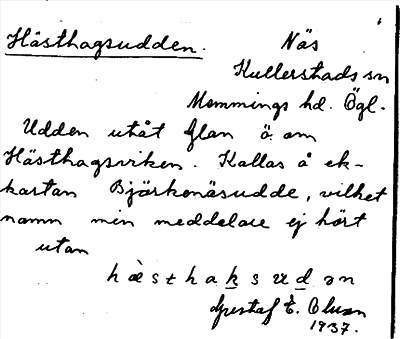 Hästhagsudden. Näs
Kullerstads sn
Memmings hd. Ögl.
Udden utåt Glan ö. om
Hästhagsviken. Kallas å ek-
kartan Björkenäsudde, vilket
namn min meddelare ej hört
utan
hæ̀sthaksudən
Gustaf E. Olson
1937.